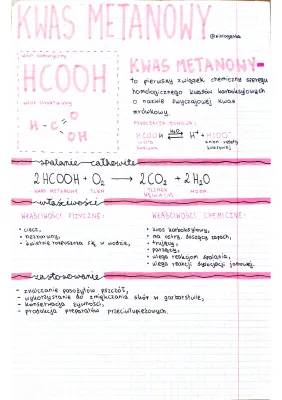 KWAS METANOWY
wzór sumaryczny
HCOOH
wzór strukturalny
H-C
O
OH
KWAS METANOWY-
to pierwszy związek chemiczny szeregu
homologicznego kwasów karboksylowych
o nazwie zwyczajowej kwas
mrówkowy.
HCOOH H₂O ⇌ H⁺ + HCOO⁻
spalanie całkowite
2HCOOH + O₂ → 2CO₂ + 2H₂O
KWAS METANOWY TLEN TLENEK WODA
właściwości
WŁAŚCIWOŚCI FIZYCZNE:
• ciecz,
• bezbarwny,
• świetnie rozpuszcza się w wodzie,
WŁAŚCIWOŚCI CHEMICZNE:
• kwas karboksylowy,
• ma ostry, duszący zapach,
• trujący,
• parzący,
• ulega reakcjom spalania,
• ulega reakcji dysocjacji jonowej.
zastosowanie
- zwalczanie pasożytów pszczół,
- wykorzystanie do zmiękczania skór w garbarstwie,
- konserwacja żywności,
- produkcja preparatów przeciwłupieżowych.